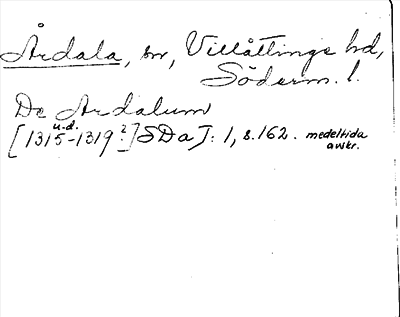 Årdala, sn, Villåttinge hd,
Söderm. l.
De Ardalum
u.d.
[1315-1319?] SDaJ: 1, s.162. medeltida
avskr.